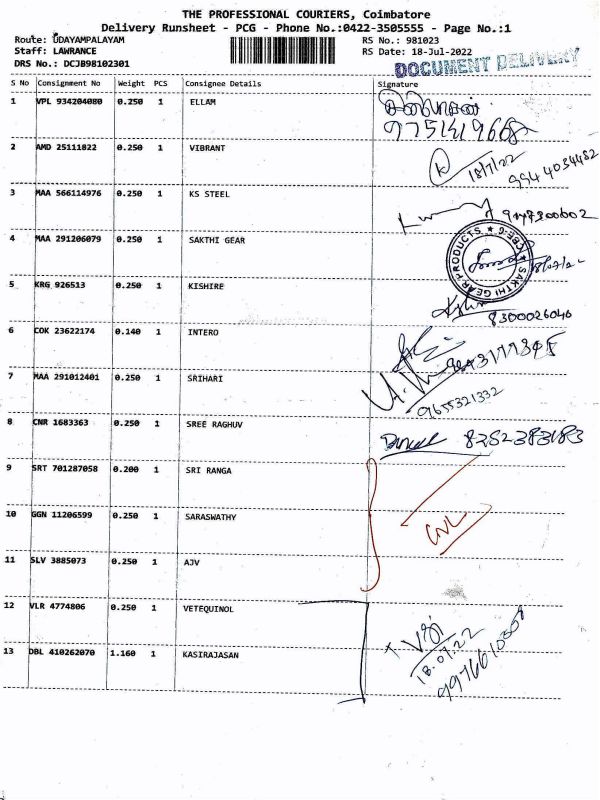 THE PROFESSIONAL COURIERS, Coimbatore
Delivery Runsheet - PCG - Phone No.:0422-3505555 - Page No.:1
Route: UDAYAMPALAYAM RS No.: 981023
Staff: LAWRANCE RS Date: 18-Jul-2022
DRS No.: DCJB98102301 DOCUMENT DELIVERY
S No Consignment No Weight PCS Consignee Details Signature
1 VPL 934204080 0.250 1 ELLAM
2 AMD 25111822 0.250 1 VIBRANT
K 18/7/22 9944034482
3 MAA 566114976 0.250 1 KS STEEL
4 MAA 291206079 0.250 1 SAKTHI GEAR
SAKTHI GEAR PRODUCTS
5 KRG 926513 0.250 1 KISHIRE
8300026046
6 COK 23622174 0.140 1 INTERO
7 MAA 291012401 0.250 1 SRIHARI
9655321332
8 CNR 1683363 0.250 1 SREE RAGHUV
8252383183
9 SRT 701287058 0.200 1 SRI RANGA
10 GGN 11206599 0.250 1 SARASWATHY
CNL
11 SLV 3885073 0.250 1 AJV
12 VLR 4774806 0.250 1 VETEQUINOL
13 DBL 410262070 1.160 1 KASIRAJASAN
18.07.22